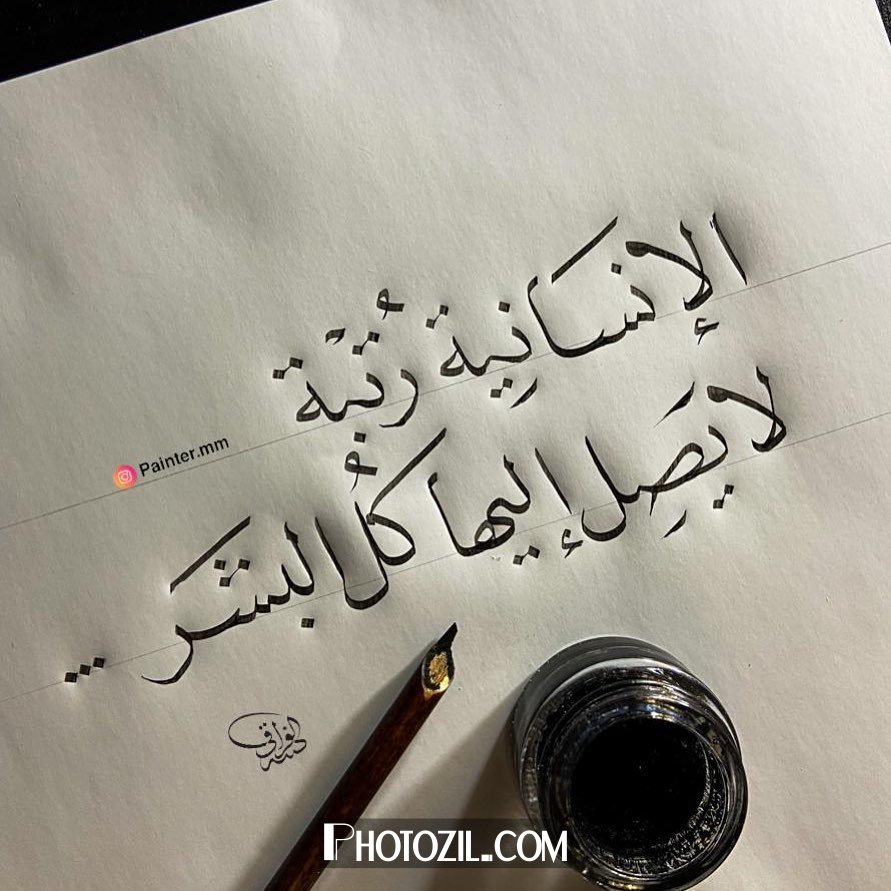 الإنسانية رُتبة
لا يَصِل إليها كلُ البشَر ...
Painter.mm
PHOTOZIL.COM